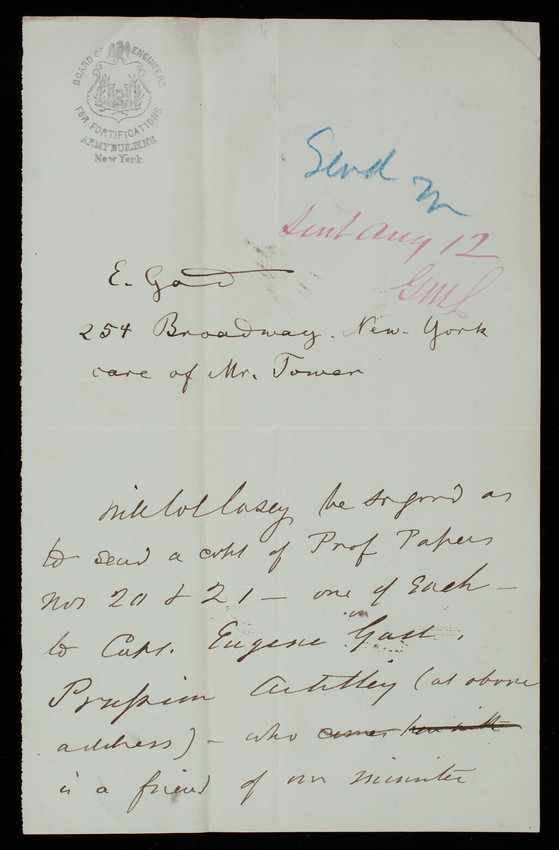 BOARD OF ENGINEERS
FOR FORTIFICATIONS
ARMY BUILDING
New York
Send
sent Aug 12
GML
E. Gast
254 Broadway. New-York
care of Mr. Tower
Will Col Casey be so good as
to send a copy of Prof Papers
Nos 20 & 21 — one of Each —
to Capt. Eugene Gast,
Prussian Artillery (at above
address) — who comes
is a friend of our minister